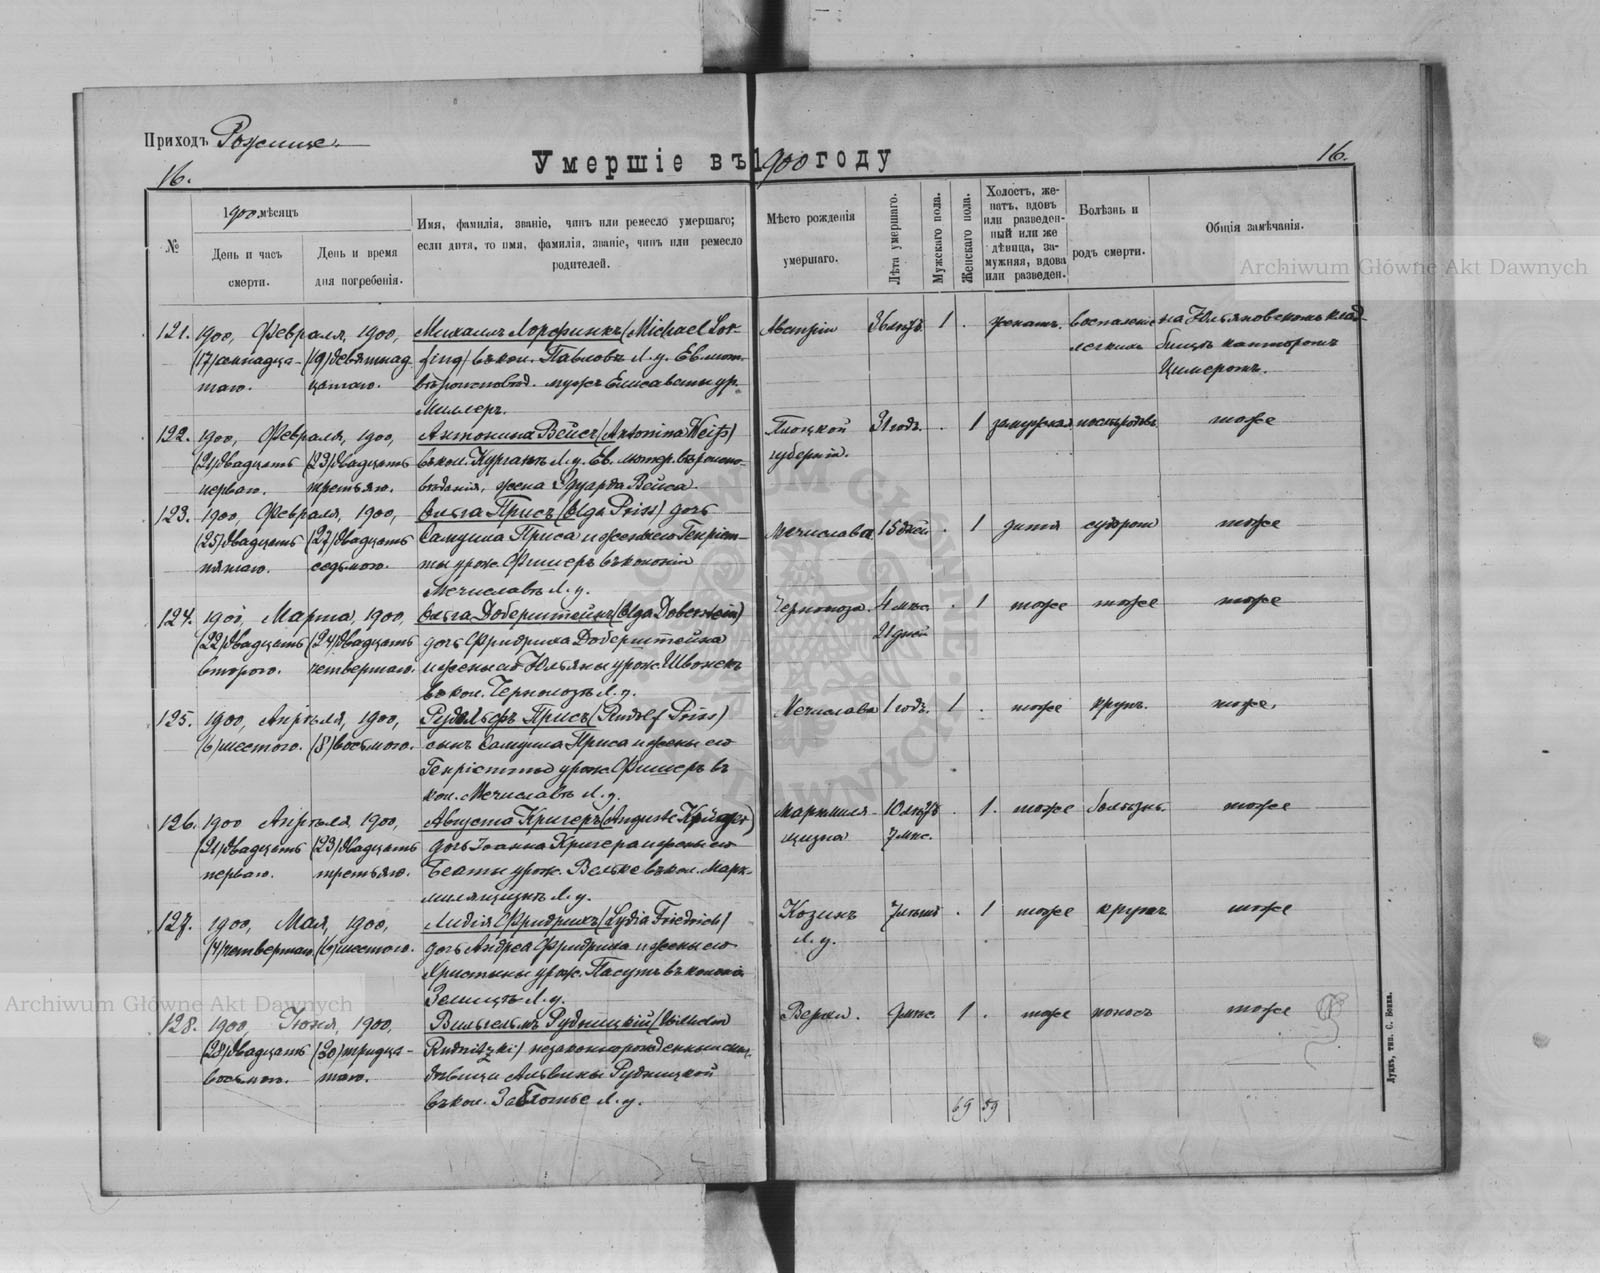 Приходъ Рожище.
Умершіе въ 1900 году
16.
16.
№
1900 мѣсяцъ
День и часъ
смерти.
День и время
дня погребенія.
Имя, фамилія, званіе, чинъ или ремесло умершаго;
если дитя, то имя, фамилія, званіе, чинъ или ремесло
родителей.
Мѣсто рожденія
умершаго.
Лѣта умершаго.
Мужскаго пола.
Женскаго пола.
Холостъ, же-
натъ, вдовъ
или разведен-
ный или же
дѣвица, за-
мужняя, вдова
или разведен.
Болѣзнь и
родъ смерти.
Общія замѣчанія.
121. 1900, Февраля, 1900, Михаилъ Лорфинкъ (Michael Lor- Австріи 36 лѣтъ 1 . женатъ. воспаленіе на Юльяновскомъ клад-
(17) семнадца- (19) девятнад- fing) въ кол. Павловъ Л. у. Ев. лют. легкихъ бищѣ канторомъ
таго. цатаго. вѣроисповѣд. мужъ Елисаветы ур. Цимеромъ.
Миллеръ.
122. 1900, Февраля, 1900, Антонина Вейсъ (Antonina Weiß) Плоцкой 31 годъ . 1 замужняя тоже
(21) двадцать (23) двадцать въ кол. Курганъ Л. у. Ев. лютер. вѣроиспо- губерніи.
перваго. третьяго. вѣданія, жена Эдуарда Вейса.
123. 1900, Февраля, 1900, Ольга Присъ (Olga Priss) дочь Мечиславъ 15 дней . 1 дитя судорог тоже
(25) двадцать (27) двадцать Самуила Приса и жены его Генріет-
пятаго. седьмого. ты урож. Фишеръ въ колоніи
Мечиславъ Л. у.
124. 1900, Марта, 1900, Ольга Доберштейнъ (Olga Doberstein) Чернолоза. 4 мѣс. . 1 тоже тоже тоже
(22) двадцать (24) двадцать дочь Фридриха Доберштейна 21 дней
второго. четвертаго. и жены его Юльяны урож.
въ кол. Чернолозъ Л. у.
125. 1900, Апрѣля, 1900, Рудольфъ Присъ (Rudolf Priss) Мечиславъ 1 годъ. 1 . тоже крупъ. тоже.
(6) шестого. (8) восьмого. сынъ Самуила Приса и жены его
Генріетты урож. Фишеръ въ
кол. Мечиславъ Л. у.
126. 1900 Апрѣля, 1900, Августа Кригеръ (Auguste Krüger) Маркиля- 10 лѣтъ . 1. тоже болѣзнь тоже
(21) двадцать (23) двадцать дочь Іоанна Кригера и жены его щизна 7 мѣс.
перваго. третьяго. Беаты урож. Вельке въ кол. Марк-
Л. у.
127. 1900, Мая, 1900, Лидія Фридрихъ (Lydia Friedrich) Козинъ . 1 тоже крупъ тоже
(4) четвертаго (6) шестого. дочь Андрея Фридриха и жены его Л. у.
Христины урож. въ колоніи
Л. у.
128. 1900, Іюня, 1900, Вильгельмъ Рудницкій (Wilhelm . 1 . тоже поносъ тоже
(28) двадцать (30) тридца- Rudnitzki) незаконнорожденный сынъ
восьмого. таго. дѣвицы Альвины Рудницкой
въ кол. Заболотье Л. у.
69 59
Луцкъ, тип. С. Бонка.
Archiwum Główne Akt Dawnych
Archiwum Główne Akt Dawnych